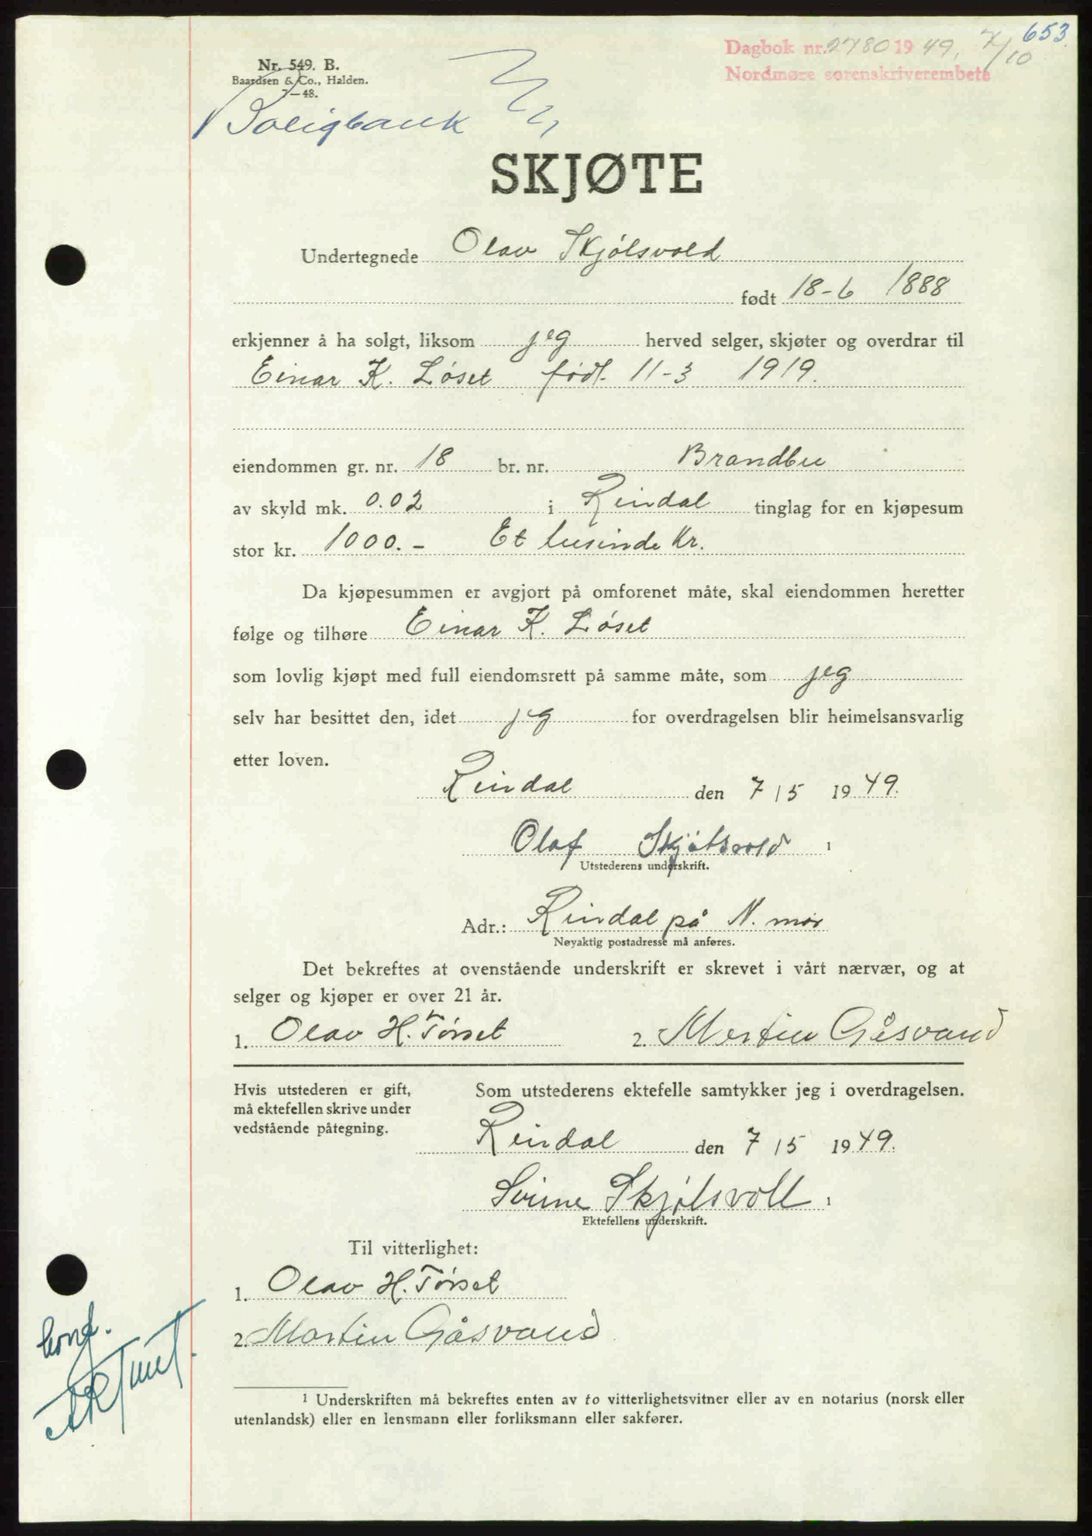 653.
Dagbok nr. 2780 1949. 7/10
Nordmøre sorenskriverembete
Nr. 549. B.
Baardsen & Co., Halden.
7—48.
Boligbank
SKJØTE
Undertegnede Olav Skjølsvold
født 18-6 1888
erkjenner å ha solgt, liksom jeg herved selger, skjøter og overdrar til
Einar K. Løset født. 11-3 1919.
eiendommen gr. nr. 18 br. nr. Brandbu
av skyld mk. 0.02 i Rindal tinglag for en kjøpesum
stor kr. 1000.- Et tusinde Kr.
Da kjøpesummen er avgjort på omforenet måte, skal eiendommen heretter
følge og tilhøre Einar K. Løset
som lovlig kjøpt med full eiendomsrett på samme måte, som jeg
selv har besittet den, idet jeg for overdragelsen blir heimelsansvarlig
etter loven.
Rindal den 7/5 1949.
Olaf Skjølsvold 1
Utstederens underskrift.
Adr.: Rindal på N. mør
Nøyaktig postadresse må anføres.
Det bekreftes at ovenstående underskrift er skrevet i vårt nærvær, og at
selger og kjøper er over 21 år.
1. Olav H. Tørset 2. Martin Gåsvand
Hvis utstederen er gift, Som utstederens ektefelle samtykker jeg i overdragelsen.
må ektefellen skrive under
vedstående påtegning.
Rindal den 7/5 1949.
Skjølsvoll 1
Ektefellens underskrift.
Til vitterlighet:
1. Olav H. Tørset
2. Martin Gåsvand
konf.
1 Underskriften må bekreftes enten av to vitterlighetsvitner eller av en notarius (norsk eller
utenlandsk) eller en lensmann eller forliksmann eller sakfører.